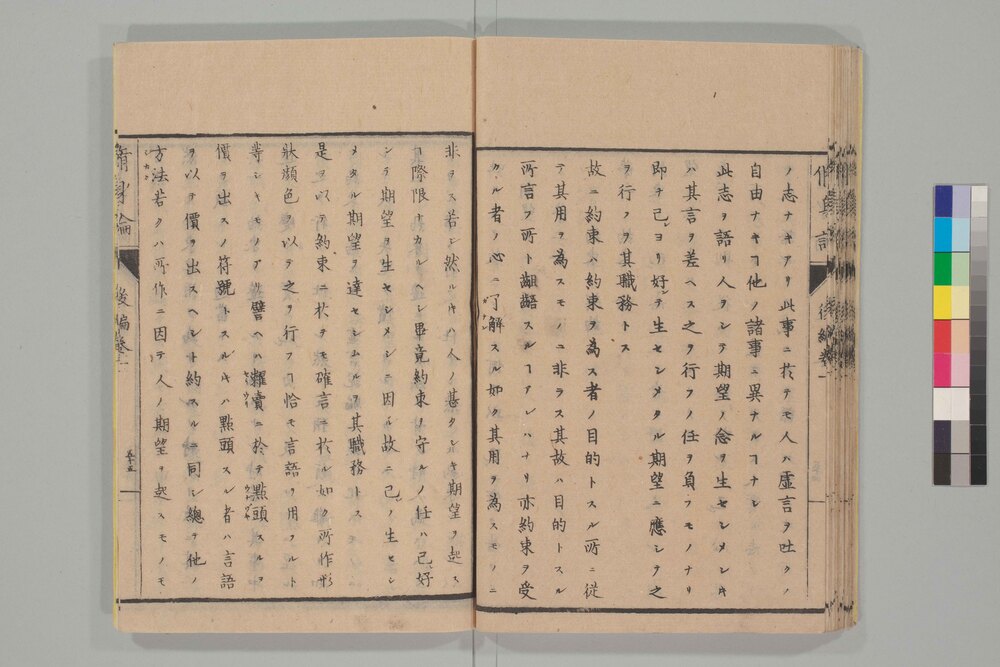 ノ志ナキアリ此事ニ於テモ人ハ虚言ヲ吐クノ
自由ナキヿ他ノ諸事ニ異ナルヿナシ
此志ヲ語リ人ヲシテ期望ノ念ヲ生センメシキ
ハ其言ヲ差ヘス之ヲ行フノ任ヲ負フモノナリ
即チ己ヨリ好テ生センメタル期望ニ應シテ之
ヲ行フヲ其職務トス
故ニ約束ハ約束ヲ為ス者ノ目的トスル所ニ從
テ其用ヲ為スモノニ非ラス其故ハ目的トスル
所言フ所ト齟齬スルヿアレハナリ亦約束ヲ受
クル者ノ心ニ了解スル如ク其用ヲ為スモノニ
非ラス若シ然ルキハ人ノ甚タシキ期望ヲ起ス
ヿ際限ナカルヘシ畢竟約束ノ守ルノ任ハ己好
ンテ期望ヲ生センメシニ因ル故ニ己ノ生セシ
メタル期望ヲ達センムルヲ其職務トス
是ヲ以テ約束ニ於テモ確言ニ於ル如ク所作形
狀顏色ヲ以テ之ヲ行フヿ恰モ言語ヲ用フルト
等シキモノアリ譬ヘハ糶賣ニ於テ點頭スルヲ
價ヲ出スノ符號トスルキハ點頭スル者ハ言語
ヲ以テ價ヲ出スヘシト約スルニ同シ總テ他ノ
方法若クハ所作ニ因テ人ノ期望ヲ起スモノモ
脩身論
後編卷一
五十五